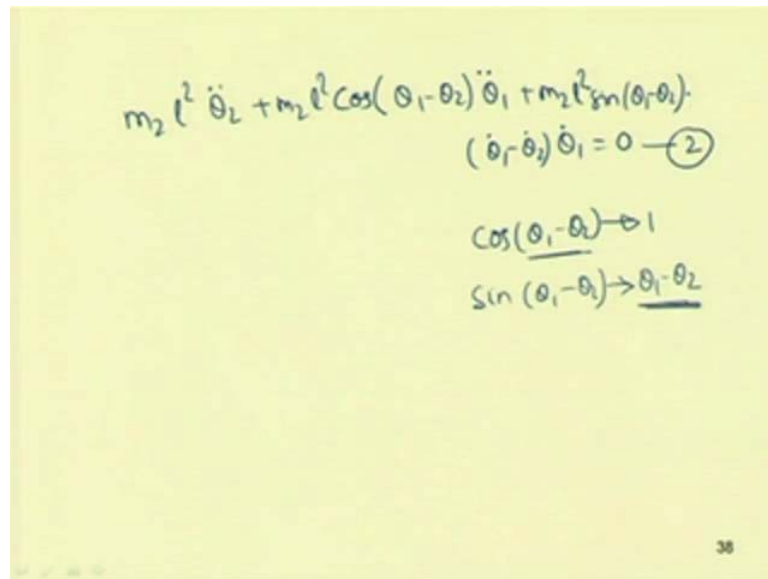 m₂ l² θ̈₂ + m₂ l² cos( θ₁-θ₂) θ̈₁ + m₂ l² sin(θ₁-θ₂).
(θ̇₁-θ̇₂) θ̇₁ = 0 — ②
cos(θ₁-θ₂) → 1
sin (θ₁-θ₂) → θ₁-θ₂
38